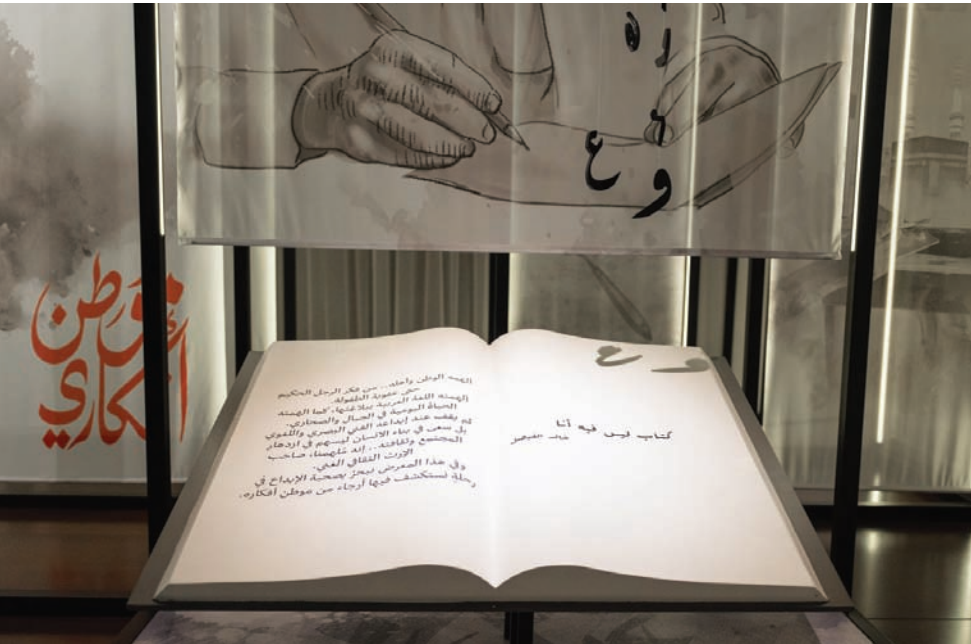 و
ع
و
موطن
أفكاري
و ع
كتاب ليس فيه أنا
خالد الفيصل
ألهمه الوطن وأهله.. من فكر الرجل الحكيم
حتى عفوية الطفولة.
ألهمته اللغة العربية ببلاغتها، كما ألهمته
الحياة اليومية في الجبال والصحاري.
لم يقف عند إبداعه الفني البصري واللغوي
بل سعى في بناء الانسان ليسهم في ازدهار
المجتمع وثقافته.. إنه مُلهمنا، صاحب
الإرث الثقافي الغني.
وفي هذا المعرض نبحرُ بصحبة الإبداع في
رحلةٍ نستكشف فيها أرجاء من موطن أفكاره.